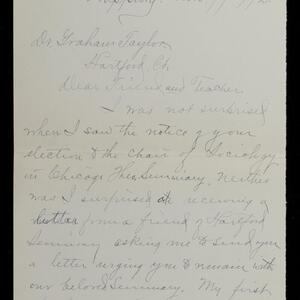 Dr. Graham Taylor,
Hartford, Ct.
Dear Friend and Teacher
I was not surprised
when I saw the notice of your
election to the chair of Sociology
in Chicago Theo. Seminary. Neither
was I surprised at receiving a
letter from a friend of Hartford
Seminary asking me to send you
a letter urging you to remain with
our beloved Seminary. My first